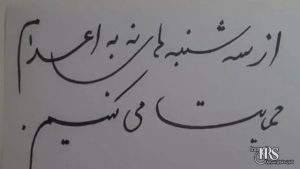 از سه شنبه های نه به اعدام
حمایت می کنیم.
IRS